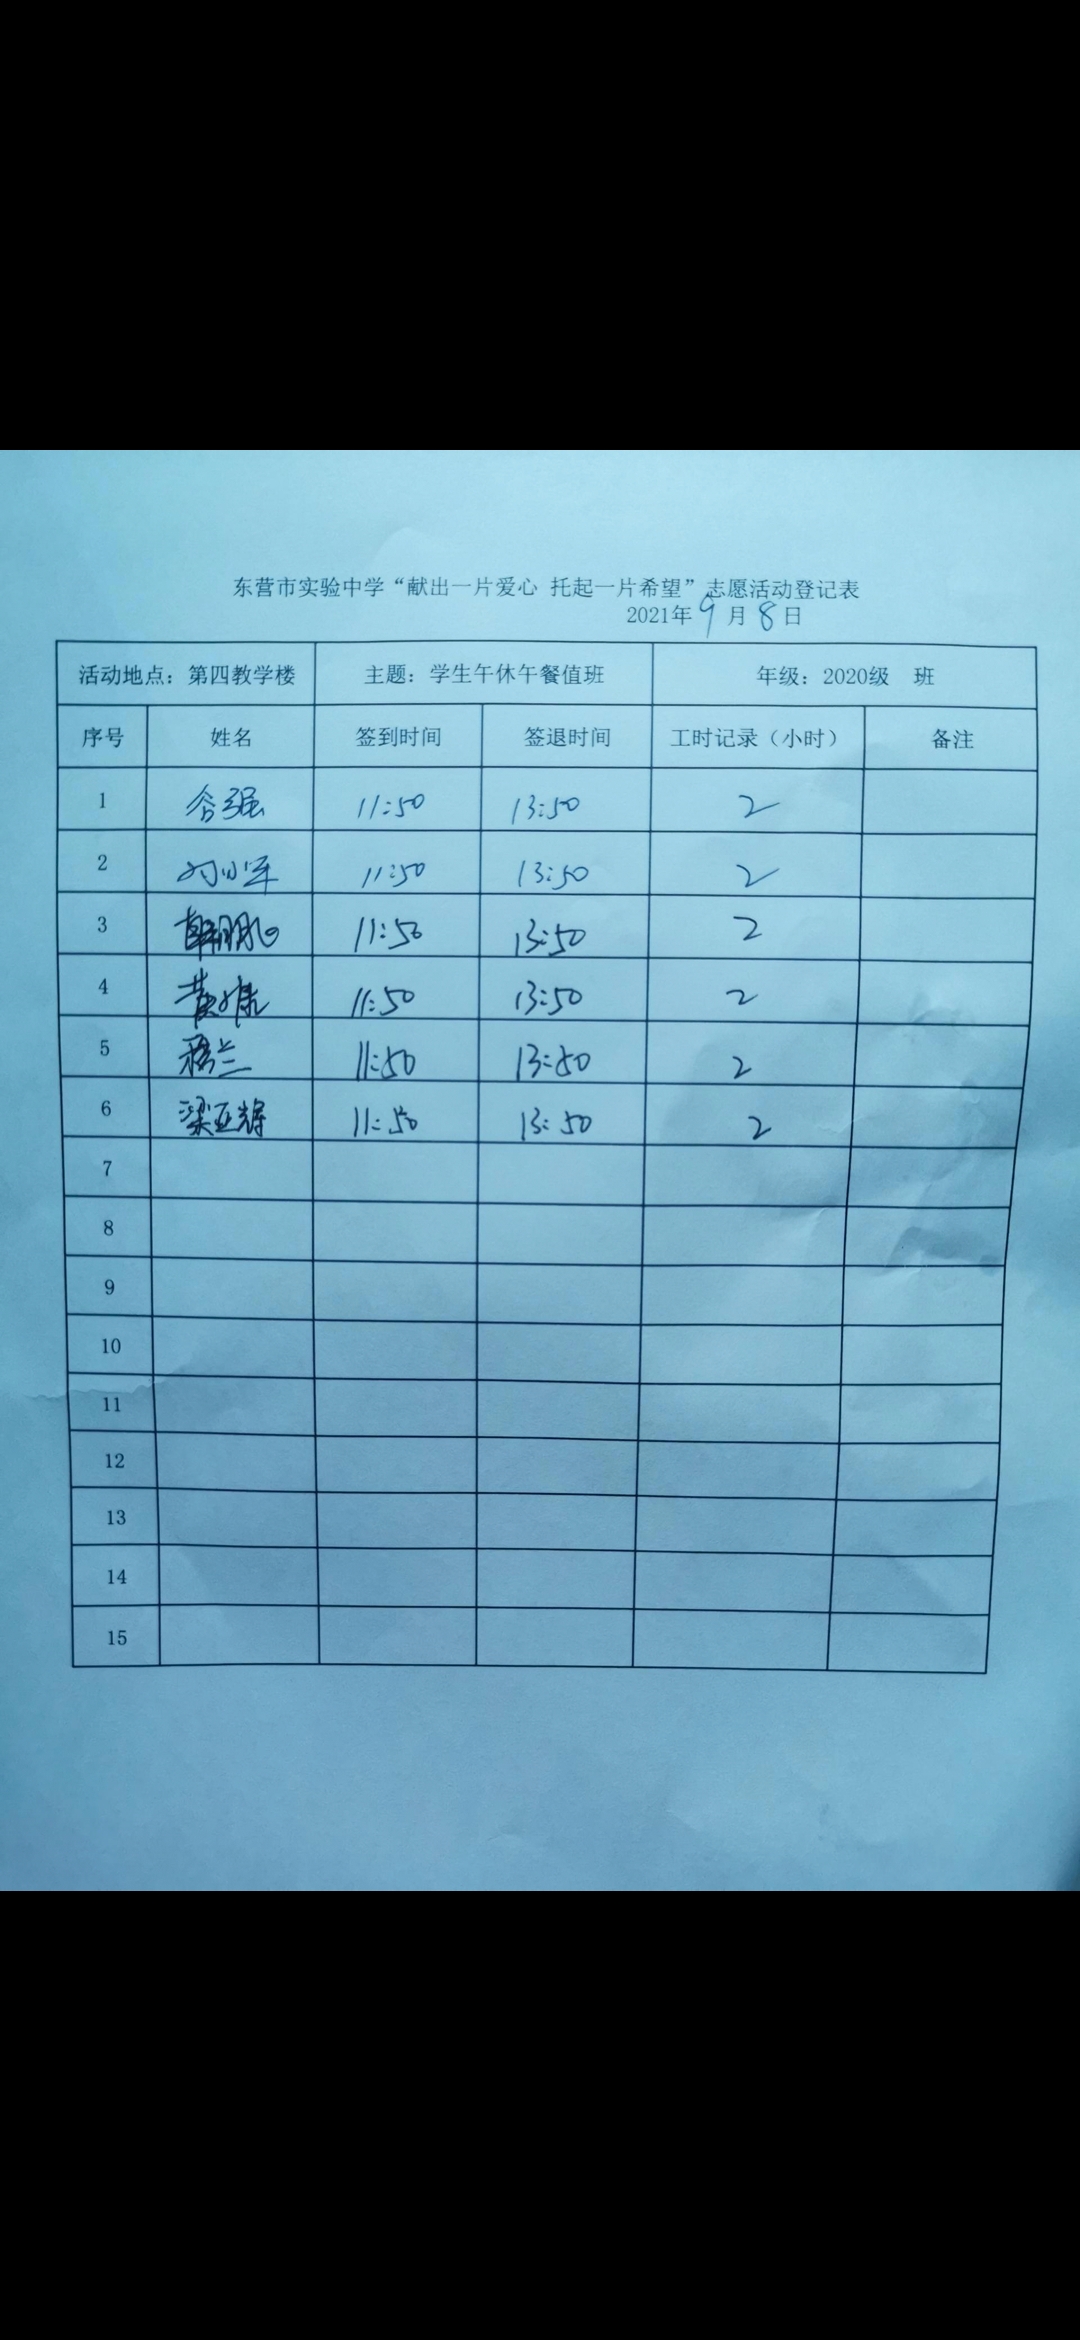 东营市实验中学“献出一片爱心 托起一片希望”志愿活动登记表
2021年9月8日
活动地点：第四教学楼 主题：学生午休午餐值班 年级：2020级 班
序号 姓名 签到时间 签退时间 工时记录（小时） 备注
1 谷强 11:50 13:50 2
2 11:50 13:50 2
3 11:50 13:50 2
4 11:50 13:50 2
5 11:50 13:50 2
6 梁亚辉 11:50 13:50 2
7
8
9
10
11
12
13
14
15